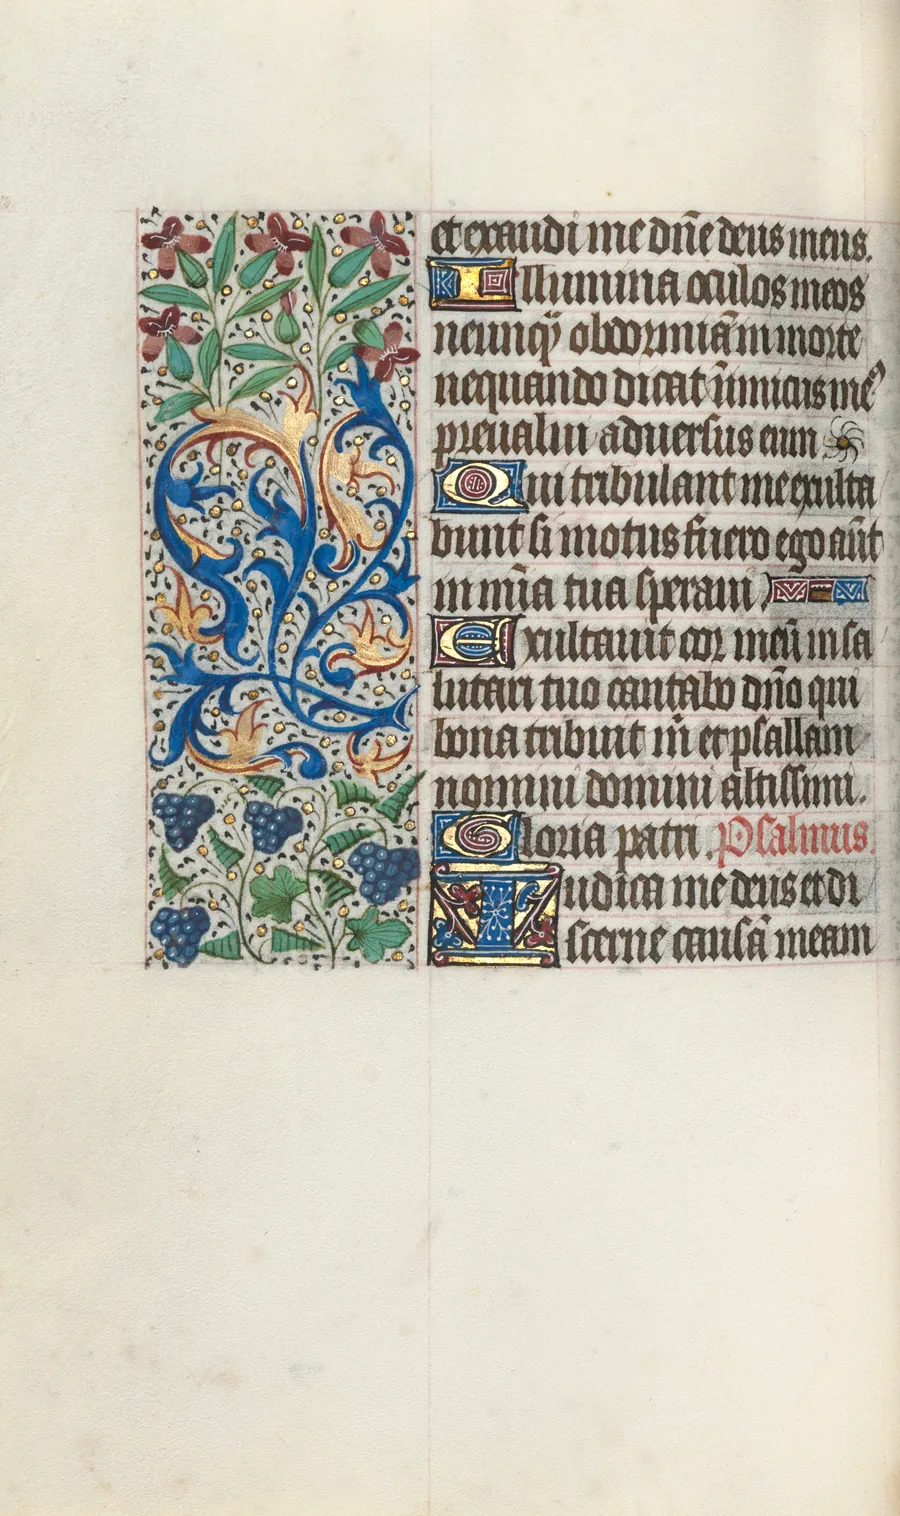 et exaudi me dn̄e deus meus.
Illumina oculos meos
ne unq̄ obdormiā in morte
nequando dicat inimicus me᷒
preualui aduersus eum
Qui tribulant me exulta
bunt si motus fuero ego aūt
in mīa tua speraui
Exultauit cor meū in sa
lutari tuo cantabo dn̄o qui
bona tribuit m̄ et psallam
nomini domini altissimi.
Gloria patri. Psalmus.
Iudica me deus et di
scerne causā meam